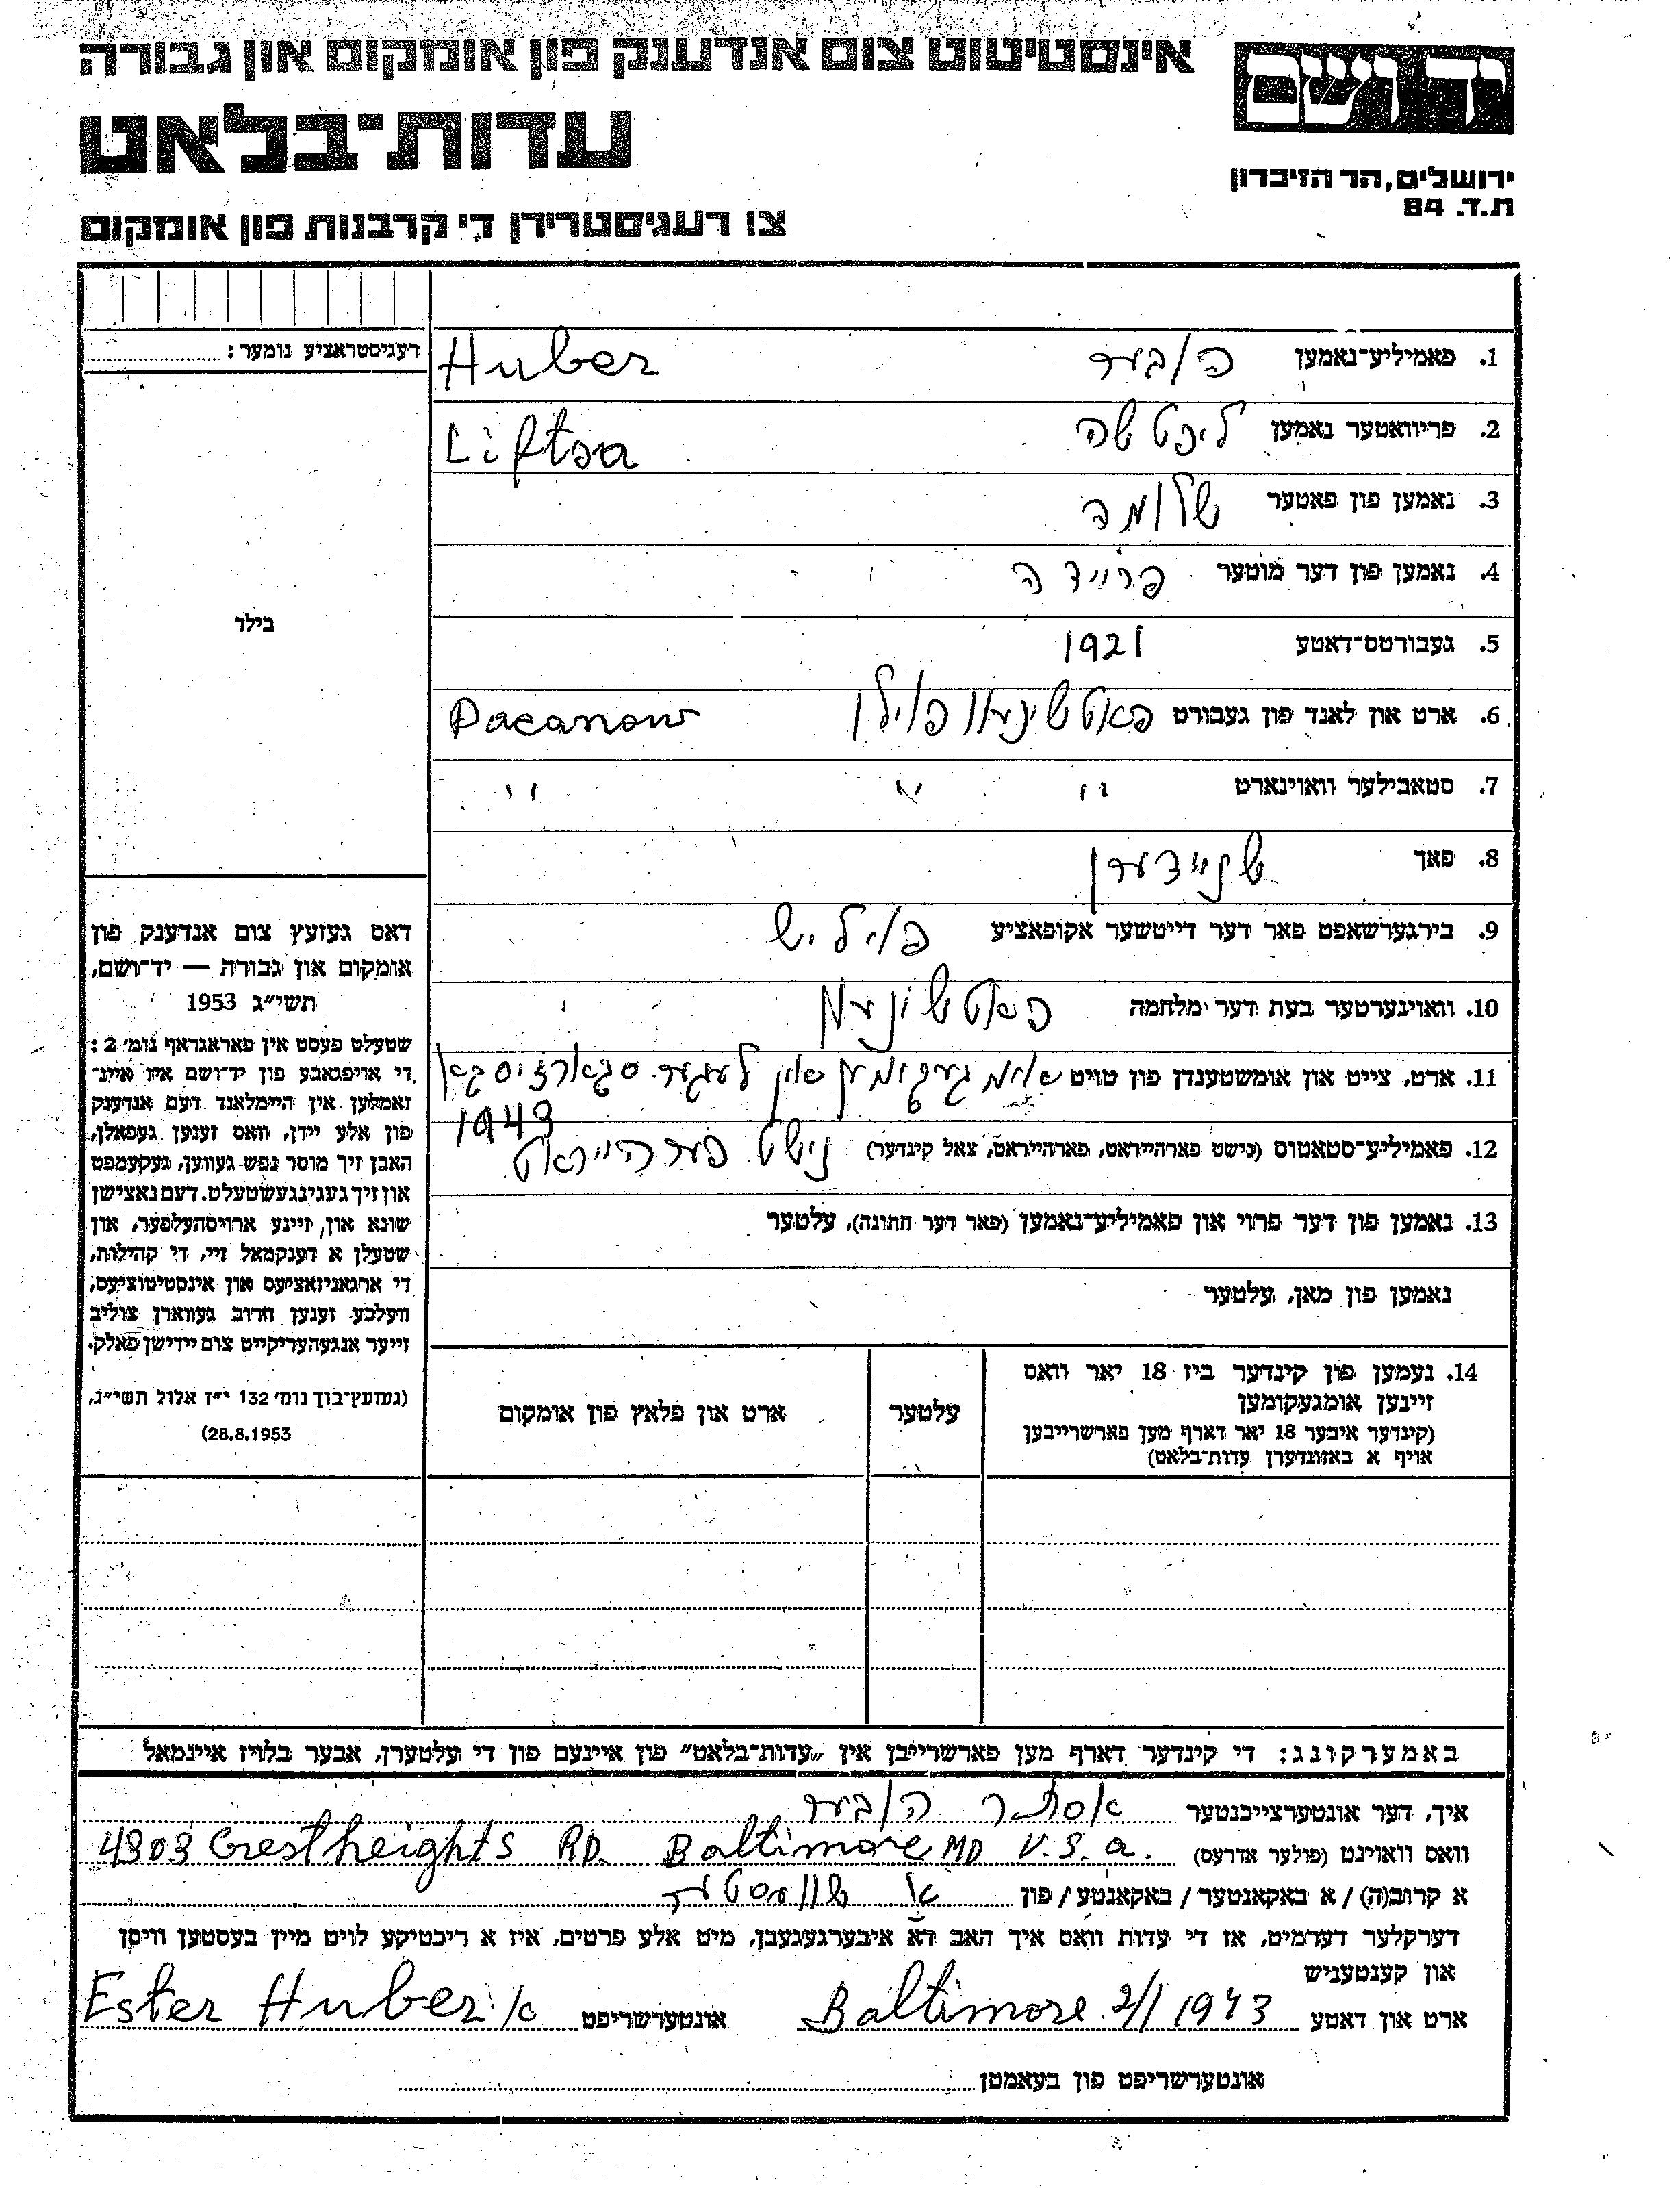 אינסטיטוט צום אנדענק פון אומקום און גבורה
יד ושם
עדות־בלאט
ירושלים, הר הזיכרון
ת.ד. 84
צו רעגיסטרירן די קרבנות פון אומקום
רעגיסטראציע נומער:
1. פאמיליע־נאמען הובער Huber
2. פריוואטער נאמען ליפטשה Liftsa
3. נאמען פון פאטער שלומה
4. נאמען פון דער מוטער פריידה
5. געבורטס־דאטע 1921
6. ארט און לאנד פון געבורט פאטשינעוו פוילן Pacanow
7. סטאבילער וואוינארט " " "
8. פאך שניידערן
9. בירגערשאפט פאר דער דייטשער אקופאציע פויליש
10. וואוינערטער בעת דער מלחמה
11. ארט, צייט און אומשטענדן פון טויט אומגעקומען אין לעגער
1943
12. פאמיליע־סטאטוס (נישט פארהייראט, פארהייראט, צאל קינדער) נישט פערהייראט
13. נאמען פון דער פרוי און פאמיליע־נאמען (פאר דער חתונה), עלטער
נאמען פון מאן, עלטער
בילד
דאס געזעץ צום אנדענק פון
אומקום און גבורה — יד־ושם,
תשי״ג 1953
שטעלט פעסט אין פאראגראף נומ׳ 2:
די אויפגאבע פון יד־ושם איז איינ־
זאמלען אין היימלאנד דעם אנדענק
פון אלע יידן, וואס זענען געפאלן,
האבן זיך מוסר נפש געווען, געקעמפט
און זיך געגינגעשטעלט דעם נאצישן
שונא און זיינע ארויסהעלפער, און
שטעלן א דענקמאל זיי, די קהילות,
די ארגאניזאציעס און אינסטיטוציעס,
וועלכע זענען חרוב געווארן צוליב
זייער אנגעהעריקייט צום יידישן פאלק.
(געזעץ־בוך נומ׳ 132 י״ז אלול תשי״ג,
28.8.1953)
14. נעמען פון קינדער ביז 18 יאר וואס
זיינען אומגעקומען
(קינדער איבער 18 יאר דארף מען פארשרייבן
אויף א באזונדערן עדות־בלאט)
עלטער
ארט און פלאץ פון אומקום
באמערקונג: די קינדער דארף מען פארשרייבן אין „עדות־בלאט״ פון איינעם פון די עלטערן, אבער בלויז איינמאל
איך, דער אונטערצייכנטער אסתר הובער
וואס וואוינט (פולער אדרעס) 4303 Crestheights RD. Baltimore MD U.S.a.
א קרוב(ה) / א באקאנטער / באקאנטע / פון א שוועסטער
דערקלער דערמיט, אז די עדות וואס איך האב דא איבערגעגעבן, מיט אלע פרטים, איז א ריכטיקע לויט מיין בעסטען וויסן
און קענטעניש
ארט און דאטע Baltimore 2/1 1973 אונטערשריפט Ester Huber
אונטערשריפט פון בעאמטן